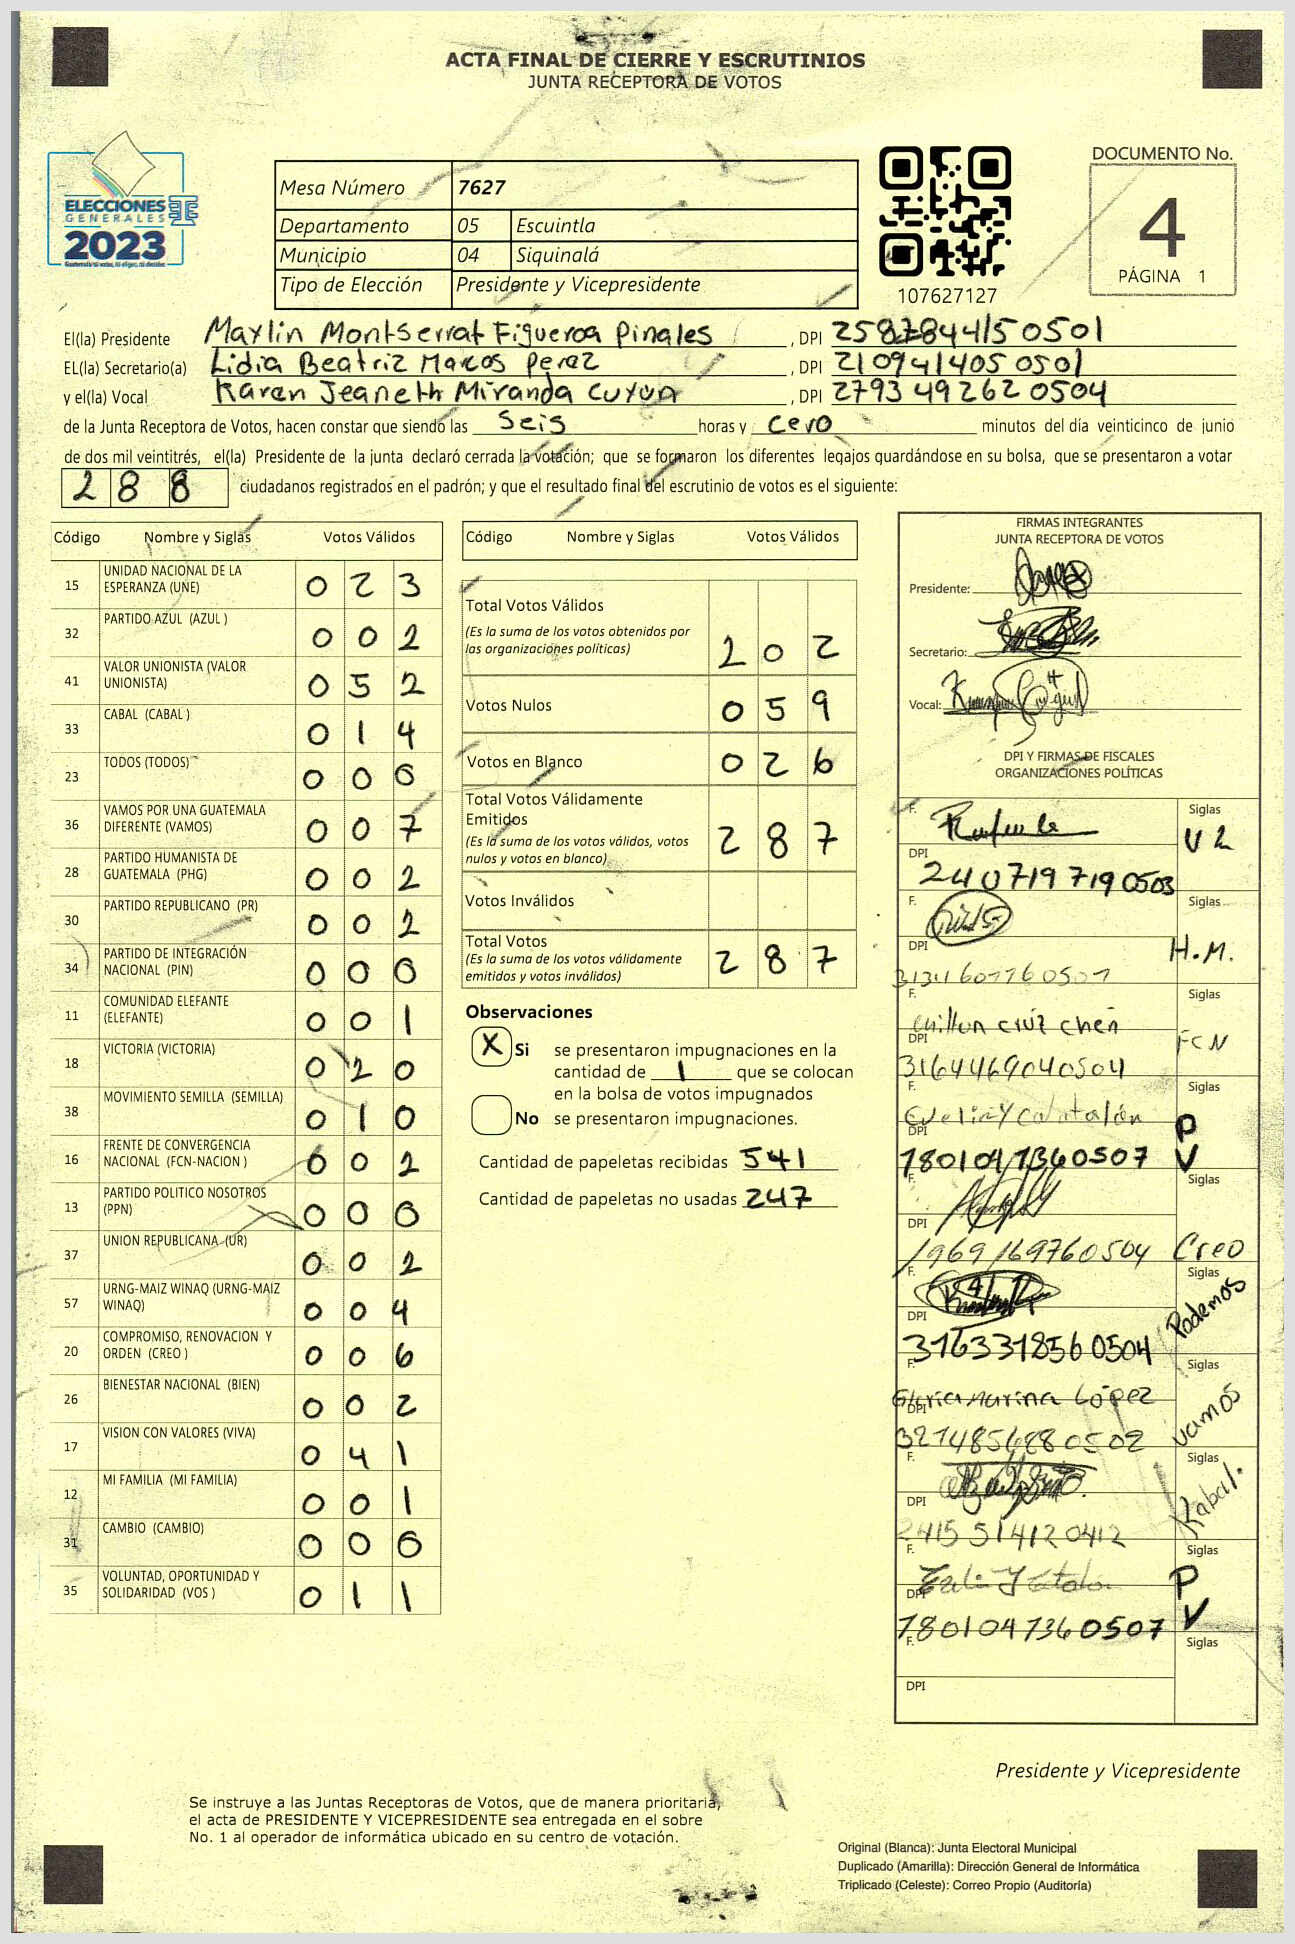 ACTA FINAL DE CIERRE Y ESCRUTINIOS
JUNTA RECEPTORA DE VOTOS
ELECCIONES
GENERALES
2023
Mesa Número 7627
Departamento 05 Escuintla
Municipio 04 Siquinalá
Tipo de Elección Presidente y Vicepresidente
107627127
DOCUMENTO No.
4
PÁGINA 1
El(la) Presidente Maylin Montserrat Figueroa Pinales, DPI 2587844150501
EL(la) Secretario(a) Lidia Beatriz Marcos Perez, DPI 2109414050501
y el(la) Vocal Karen Jeaneth Miranda Cuyun, DPI 2793492620504
de la Junta Receptora de Votos, hacen constar que siendo las Seis horas y cero minutos del día veinticinco de junio
de dos mil veintitrés, el(la) Presidente de la junta declaró cerrada la votación; que se formaron los diferentes legajos guardándose en su bolsa, que se presentaron a votar
288 ciudadanos registrados en el padrón; y que el resultado final del escrutinio de votos es el siguiente:
Código Nombre y Siglas Votos Válidos
15 UNIDAD NACIONAL DE LA ESPERANZA (UNE) 023
32 PARTIDO AZUL (AZUL ) 002
41 VALOR UNIONISTA (VALOR UNIONISTA) 052
33 CABAL (CABAL ) 014
23 TODOS (TODOS) 000
36 VAMOS POR UNA GUATEMALA DIFERENTE (VAMOS) 007
28 PARTIDO HUMANISTA DE GUATEMALA (PHG) 002
30 PARTIDO REPUBLICANO (PR) 002
34 PARTIDO DE INTEGRACIÓN NACIONAL (PIN) 000
11 COMUNIDAD ELEFANTE (ELEFANTE) 001
18 VICTORIA (VICTORIA) 020
38 MOVIMIENTO SEMILLA (SEMILLA) 010
16 FRENTE DE CONVERGENCIA NACIONAL (FCN-NACION ) 002
13 PARTIDO POLITICO NOSOTROS (PPN) 000
37 UNION REPUBLICANA (UR) 002
57 URNG-MAIZ WINAQ (URNG-MAIZ WINAQ) 004
20 COMPROMISO, RENOVACION Y ORDEN (CREO ) 006
26 BIENESTAR NACIONAL (BIEN) 002
17 VISION CON VALORES (VIVA) 041
12 MI FAMILIA (MI FAMILIA) 001
31 CAMBIO (CAMBIO) 000
35 VOLUNTAD, OPORTUNIDAD Y SOLIDARIDAD (VOS ) 011
Código Nombre y Siglas Votos Válidos
Total Votos Válidos
(Es la suma de los votos obtenidos por
las organizaciones políticas) 202
Votos Nulos 059
Votos en Blanco 026
Total Votos Válidamente
Emitidos
(Es la suma de los votos válidos, votos
nulos y votos en blanco) 287
Votos Inválidos
Total Votos
(Es la suma de los votos válidamente
emitidos y votos inválidos) 287
Observaciones
X Si se presentaron impugnaciones en la
cantidad de 1 que se colocan
en la bolsa de votos impugnados
No se presentaron impugnaciones.
Cantidad de papeletas recibidas 541
Cantidad de papeletas no usadas 247
FIRMAS INTEGRANTES
JUNTA RECEPTORA DE VOTOS
Presidente:
Secretario:
Vocal:
DPI Y FIRMAS DE FISCALES
ORGANIZACIONES POLÍTICAS
F. Siglas
DPI 2407197190503
F. Siglas H.M.
DPI
F. cruz chen Siglas FCN
DPI 3164469040504
F. Siglas P V
DPI 1801047360507
F. Siglas Creo
DPI 1969169760504
F. Siglas Podemos
DPI 3163318560504
F. Gloria Marina López Siglas vamos
DPI 3274856880502
F. Siglas Kabal.
DPI 2415514120412
F. Siglas P V
DPI 1801047360507
F. Siglas
DPI
Presidente y Vicepresidente
Se instruye a las Juntas Receptoras de Votos, que de manera prioritaria,
el acta de PRESIDENTE Y VICEPRESIDENTE sea entregada en el sobre
No. 1 al operador de informática ubicado en su centro de votación.
Original (Blanca): Junta Electoral Municipal
Duplicado (Amarilla): Dirección General de Informática
Triplicado (Celeste): Correo Propio (Auditoría)